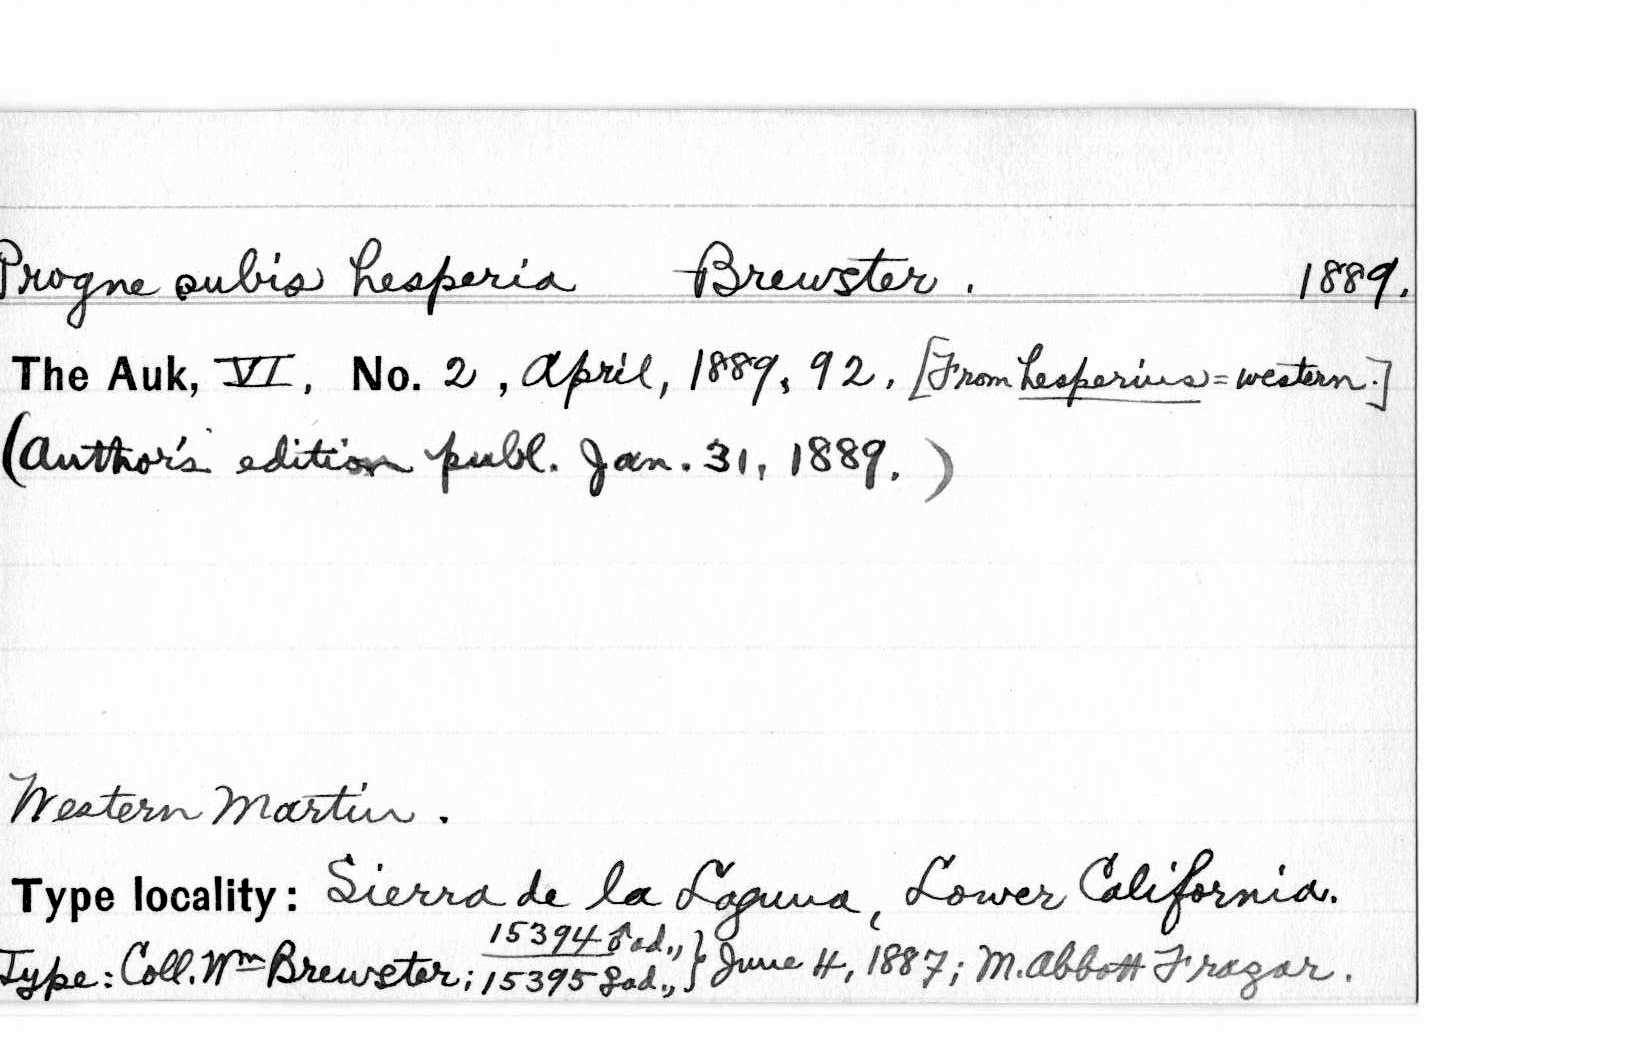 Progne subis hesperia Brewster. 1889.
The Auk, VI, No. 2, April, 1889, 92. [From hesperius = western.]
(Author's edition publ. Jan. 31, 1889.)
Western Martin.
Type locality: Sierra de la Laguna, Lower California.
Type: Coll. Wm Brewster; 15394 ♂ ad., 15395 ♀ ad., } June 4, 1887; M. Abbott Frazar.